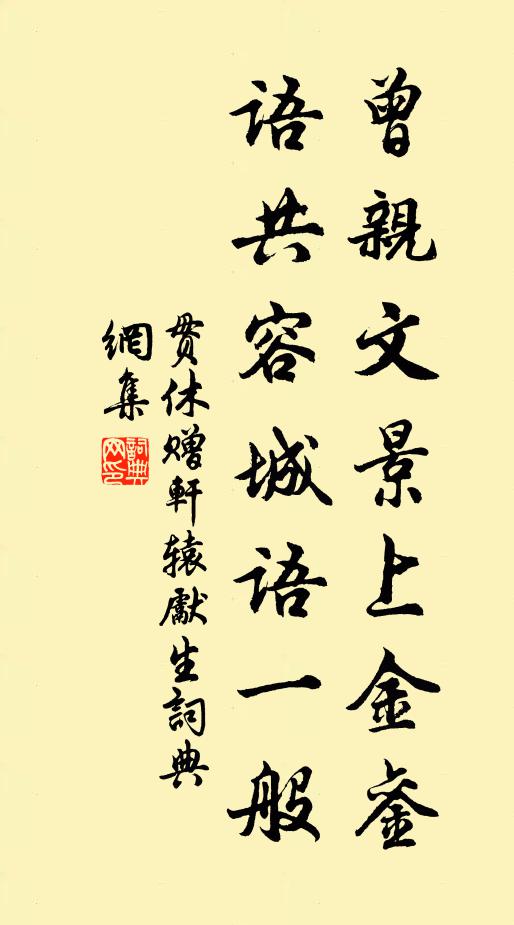 曾親文景上金銮
语共容城语一般
贯休赠軒辕獻生詞典
網集
詞典网印